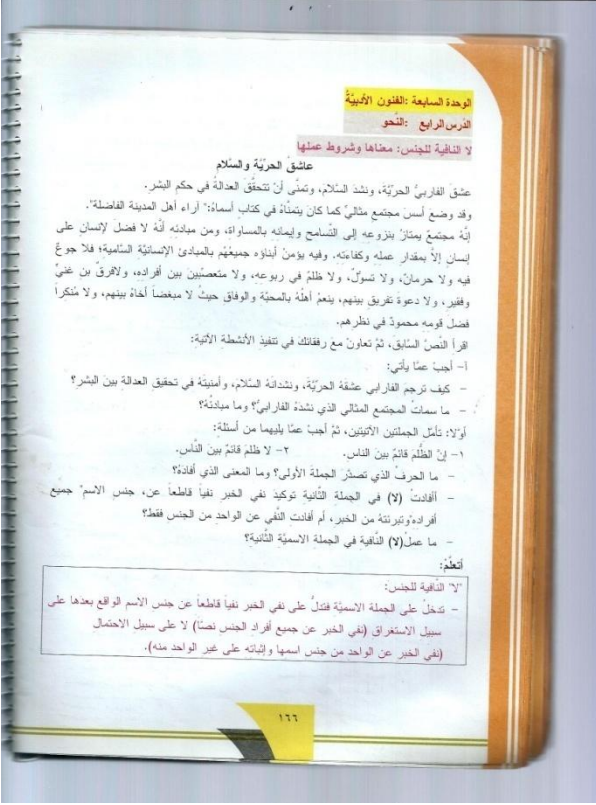 الوحدة السابعة :الفنون الأدبيَّةُ
الدَّرس الرابع :النَّحو
لا النافية للجنس: معناها وشروط عملها
عاشقُ الحريّة والسَّلام
عشقَ الفاربيُّ الحريَّةَ، ونشدَ السَّلامَ، وتمنَّى أنْ تتحقَّقَ العدالةُ في حكم البشرِ.
وقد وضعَ أسسَ مجتمعٍ مثاليٍّ كما كانَ يتمنَّاهُ في كتابٍ أسماهُ:" آراء أهل المدينة الفاضلة".
إنَّهُ مجتمعٌ يمتازُ بنزوعِهِ إلى التَّسامحِ وإيمانه بالمساواةِ، ومن مبادئه أنَّهُ لا فضلَ لإنسانٍ على
إنسانٍ إلاَّ بمقدار عمله وكفاءته. وفيه يؤمنُ أبناؤه جميعُهُم بالمبادئ الإنسانيَّة السَّامية؛ فلا جوعٌ
فيه ولا حرمانٌ، ولا تسوّلٌ، ولا ظلمٌ في ربوعه، ولا متعصّبينَ بين أفراده، ولافرقَ بن غنيٍّ
وفقيرٍ، ولا دعوة تفريق بينهم، ينعمُ أهلُهُ بالمحبَّة والوفاق حيثُ لا مبغضاً أخاهُ بينهم، ولا مُنكراً
فضل قومهِ محمودٌ في نظرهم.
اقرأ النَّصَّ السَّابق، ثمَّ تعاونْ معَ رفقائك في تنفيذ الأنشطة الآتية:
آ- أجبْ عمَّا يأتي:
- كيف ترجمَ الفارابي عشقهُ الحريَّةَ، ونشدانهُ السَّلامَ، وأمنيتهُ في تحقيق العدالة بينَ البشر؟
- ما سماتُ المجتمع المثالي الذي نشدهُ الفارابيُّ؟ وما مبادئُهُ؟
أوّلاً: تأمّل الجملتين الآتيتين، ثمّ أجبْ عمَّا يليهما من أسئلةٍ:
١- إنَّ الظُّلمَ قائمٌ بينَ الناسِ. ٢- لا ظلمَ قائمٌ بينَ النَّاسِ.
- ما الحرفُ الذي تصدَّرَ الجملةَ الأولى؟ وما المعنى الذي أفادَهُ؟
- أأفادتْ (لا) في الجملة الثَّانية توكيدَ نفي الخبر نفياً قاطعاً عن، جنسِ الاسم" جميع
أفراده"وتبرئتهُ من الخبر، أم أفادت النَّفيَ عن الواحدِ من الجنس فقط؟
- ما عملُ(لا) النَّافية في الجملة الاسميَّة الثَّانية؟
أتعلَّمُ:
"لا" النَّافية للجنس:
- تدخلُ على الجملة الاسميَّة فتدلُّ على نفي الخبر نفياً قاطعاً عن جنس الاسم الواقع بعدها على
سبيل الاستغراق (نفي الخبر عن جميع أفراد الجنس نصّاً) لا على سبيل الاحتمالِ
(نفي الخبر عن الواحد من جنس اسمها وإثباته على غير الواحد منه).
١٦٦